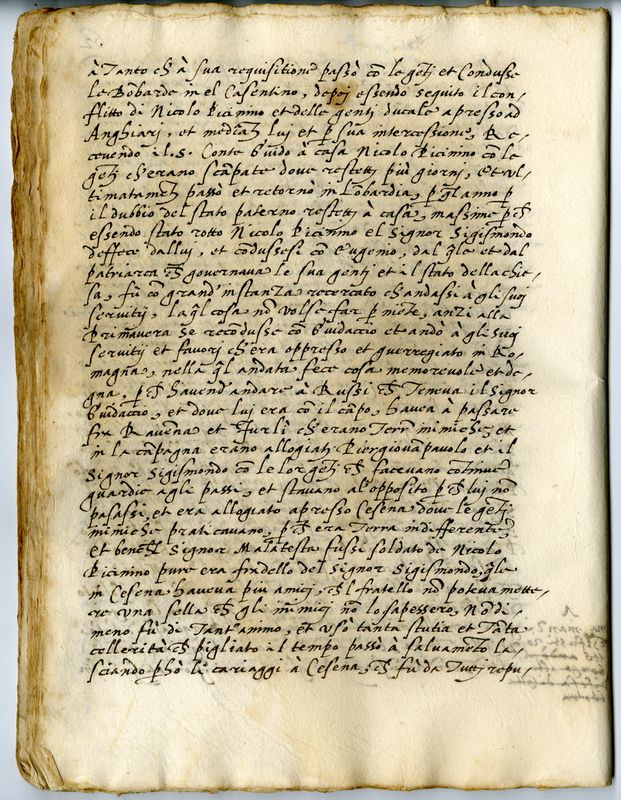 à Tanto ch à sua requisitione passò cō le gētj et Condusse
Le Bōbarde in el Casentino, depoj essendo seguito il con,
flitto di Nicolo Picinino et delle genti ducale apresso ad
Anghiari, et mediātj lui et p̄ sua intercessione, Re,
cevendo il S. Conte Guido à casa Nicolo Picinino cō le
gētj ch'erano scāpate dove restettj più giorni, Et ul,
timatamētj passò et retornò in Lōbardia, p̄ q̄l anno p̄
il dubbio del stato paterno restettj à casa, massime p̄ch
essendo stato rotto Nicolo Picinino el Signor Sigismondo
deffece dallui, et condussesi cō Eugenio, dal q̄le et dal
patriarca ch governava le sua genti et il stato della chie,
sa, fù cō grand' instanza recercato ch andassi à gli suoj
servitij, la q̄l cosa nō volse far p̄ niēte, anzi alla
Primavera se recondusse cō Guidaccio et andò à gli suoj
servitij et favori ch'era oppresso et guerregiato in Ro,
magna, nella q̄l andata fece cosa memorevole et de,
gna, p̄ch havend' andare à Russi ch Teneva il Signor
Guidaccio, et dove lui era cō il cāpo, havea a passare
fra Ravēna et Furlì ch'erano Terre inimiche, et
in la cāpagna erano allogiati Piergiovāpavolo et il
Signor Sigismondo cō le lor gētj ch facevano cōtinue
guardie agli passi, et stavano al'opposito p̄ch lui nō
pasassi, et era allogiato apresso Cesena dove le gētj
inimiche praticavano, p̄ch era Terra indifferente,
et benchel Signor Malatesta fussi soldato de Nicolo
Picinino pure era fradello del Signor Sigismondo, q̄le
in Cesena haveva piu amici, chl fratello nō poteva mette,
re una sella ch gli inimici nō lo sapessero, Nōdi,
meno fù di Tant'animo, et usò tanta stutia et Tāta
cellerità ch pigliato il tempo passò à salvamēto la,
sciando p̄hò li cariaggi à Cesena, ch fù da Tuttj repu,